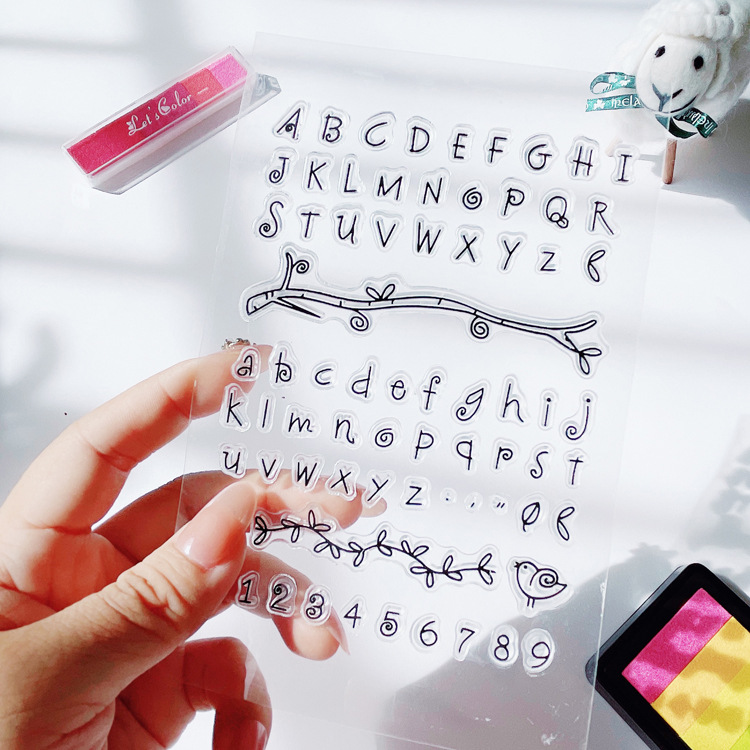 Let's Color
mela
A B C D E F G H I
J K L M N O P Q R
S T U V W X Y Z ß
a b c d e f g h i j
k l m n o p q r s t
u v w x y z . , " Ø ß
1 2 3 4 5 6 7 8 9